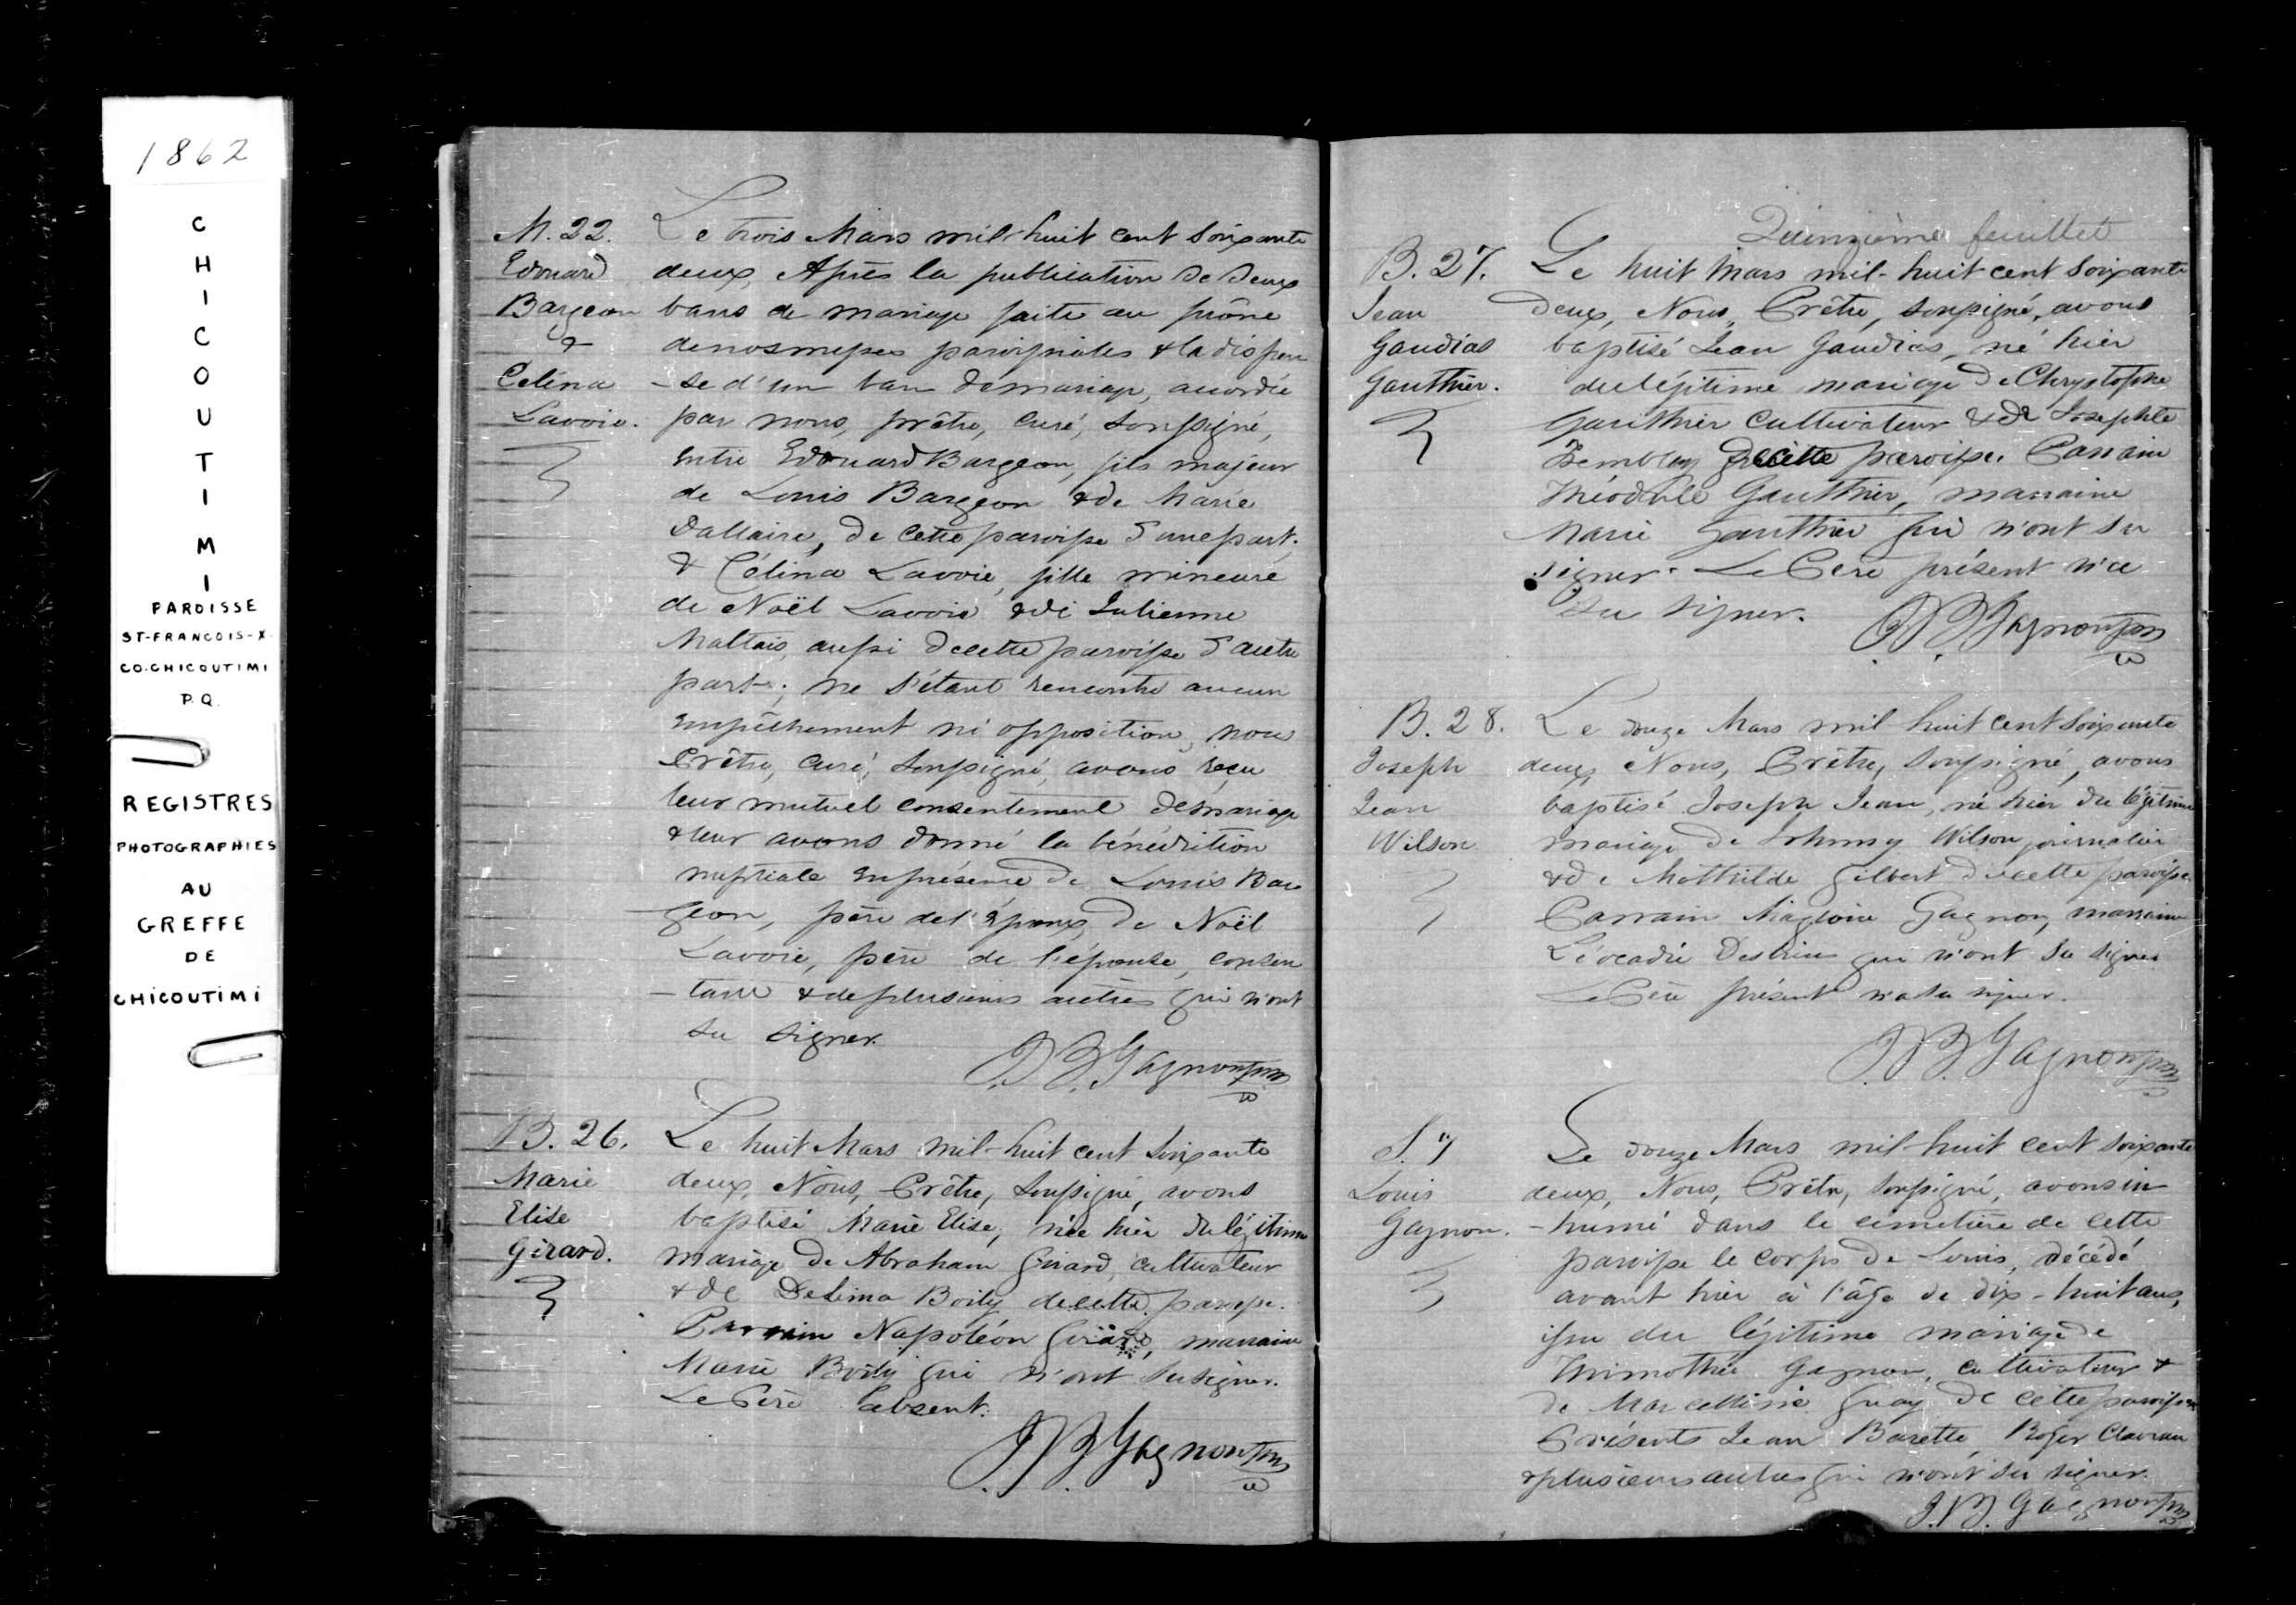 1862
CHICOUTIMI
PAROISSE
ST-FRANCOIS-X.
CO-CHICOUTIMI
P.Q.
REGISTRES
PHOTOGRAPHIES
AU
GREFFE
DE
CHICOUTIMI
M. 22.
Edouard
Bargeon
&
Célina
Lavoie.
Le trois Mars mil-huit cent soixante
deux, Après la publication de deux
bans de mariage faite au prône
de nos messes paroissiales & la dispen
-se d'un ban de mariage, accordée
par nous, prêtre, curé, soussigné,
entre Edouard Bargeon, fils majeur
de Louis Bargeon & de Marie
Dallaire, de cette paroisse d'une part.
& Célina Lavoie, fille mineure
de Noël Lavoie & de Julienne
Maltais, aussi de cette paroisse d'autre
part; ne s'étant rencontré aucun
empêchement ni opposition, nous
Prêtre, curé, soussigné, avons reçu
leur mutuel consentement de mariage
& leur avons donné la bénédiction
nuptiale en présence de Louis Bar
geon, père de l'époux, de Noël
Lavoie, père de l'épouse, consen
-tant & de plusieurs autres qui n'ont
su signer.
J.B. Gagnon ptre
B. 26.
Marie
Elise
Girard.
Le huit Mars mil-huit cent soixante
deux, Nous, Prêtre, soussigné, avons
baptisé Marie Elise, née hier du légitime
mariage de Abraham Girard, cultivateur
& de Delima Boily de cette paroisse.
Parrain Napoléon Girard, marraine
Marie Boily qui n'ont su signer.
Le Père absent.
J.B. Gagnon ptre
Quinzième feuillet
B. 27.
Jean
Gaudias
Gauthier.
Le huit Mars mil-huit cent soixante
deux, Nous, Prêtre, soussigné, avons
baptisé Jean Gaudias, né hier
du légitime mariage de Chrystophe
Gauthier cultivateur & de Josephte
Tremblay de cette paroisse. Parrain
Théodule Gauthier, marraine
Marie Gauthier qui n'ont su
signer. Le Père présent n'a
su signer.
J.B. Gagnon ptre
B. 28.
Joseph
Jean
Wilson
Le douze Mars mil huit cent soixante
deux, Nous, Prêtre, soussigné, avons
baptisé Joseph Jean, né hier du légitime
mariage de Johnny Wilson journalier
& de Mathilde Gilbert de cette paroisse.
Parrain Magloire Gagnon, marraine
Léocadie Desbiens qui n'ont su signer
Le Père présent n'a su signer.
J.B. Gagnon ptre
S. 7
Louis
Gagnon.
Le douze Mars mil-huit cent soixante
deux, Nous, Prêtre, soussigné, avons in
-humé dans le cimetière de cette
paroisse le corps de Louis, décédé
avant hier à l'âge de dix-huit ans,
issu du légitime mariage de
Thimothée Gagnon, cultivateur &
de Marcelline Guay de cette paroisse
Présents Jean Barette, Roger Claveau
& plusieurs autres qui n'ont su signer.
J.B. Gagnon ptre